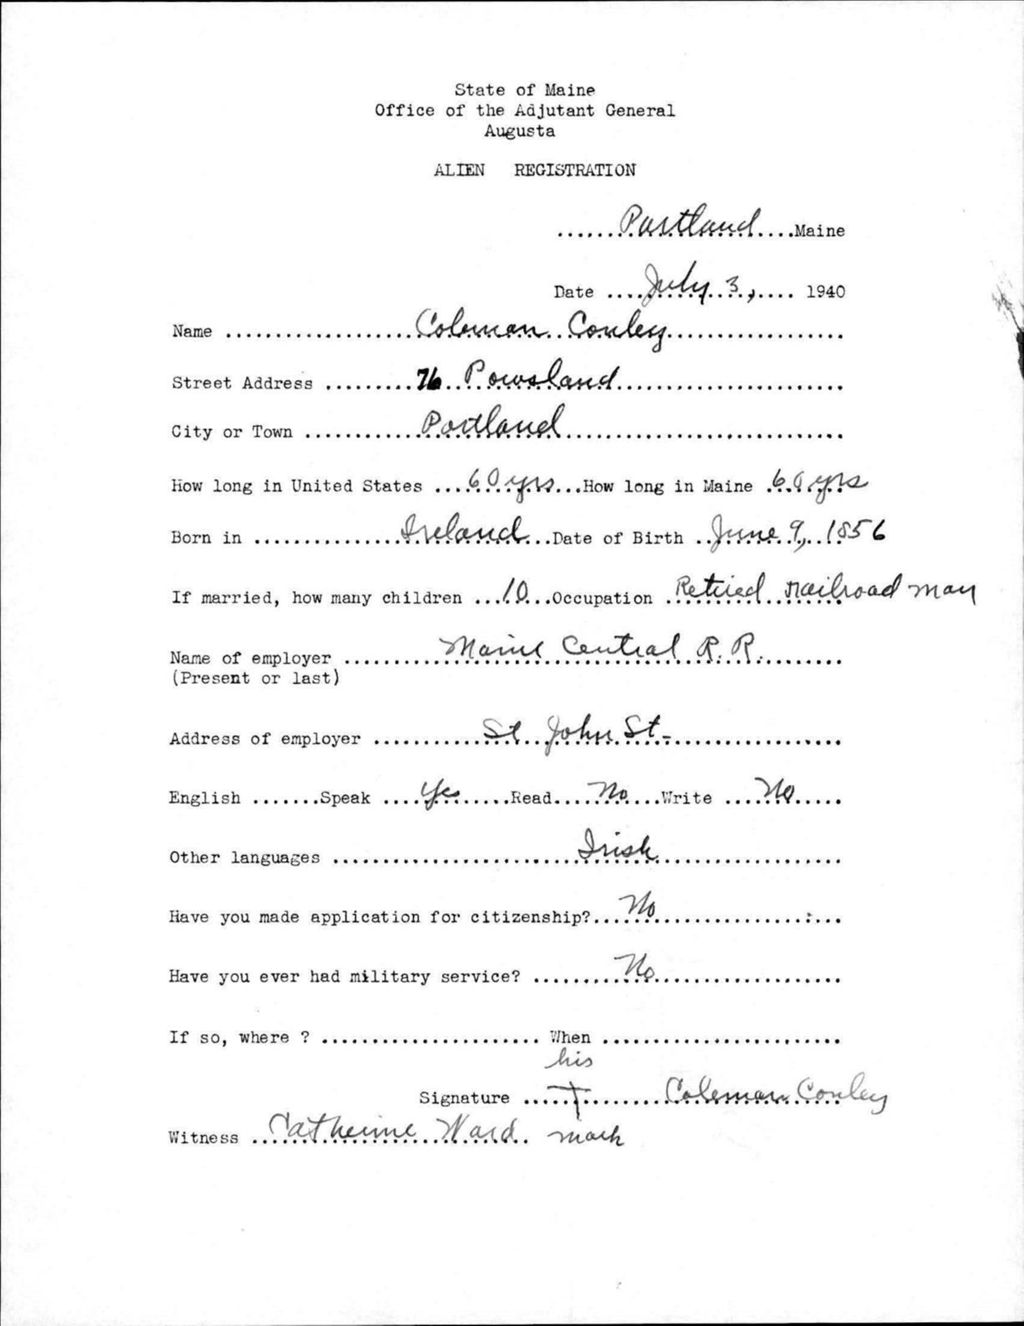 State of Maine
Office of the Adjutant General
Augusta
ALIEN REGISTRATION
......Portland....Maine
Date ....July 3,.... 1940
Name ...................Coleman Conley..................
Street Address .........76 Powsland.......................
City or Town ............Portland............................
How long in United States ...60 yrs...How long in Maine .60 yrs
Born in ...............Ireland...Date of Birth ..June 9, 1856
If married, how many children ...10...Occupation .Retired railroad man
Name of employer ..........Maine Central R.R..........
(Present or last)
Address of employer ...........St John St-.................
English .......Speak ....Yes......Read....No....Write ....No.....
Other languages ........................Irish..................
Have you made application for citizenship?...No..................
Have you ever had military service? .........No...................
If so, where ? ...................... When ........................
his
Signature .....+........Coleman Conley
Witness ..Catherine Ward.. mark